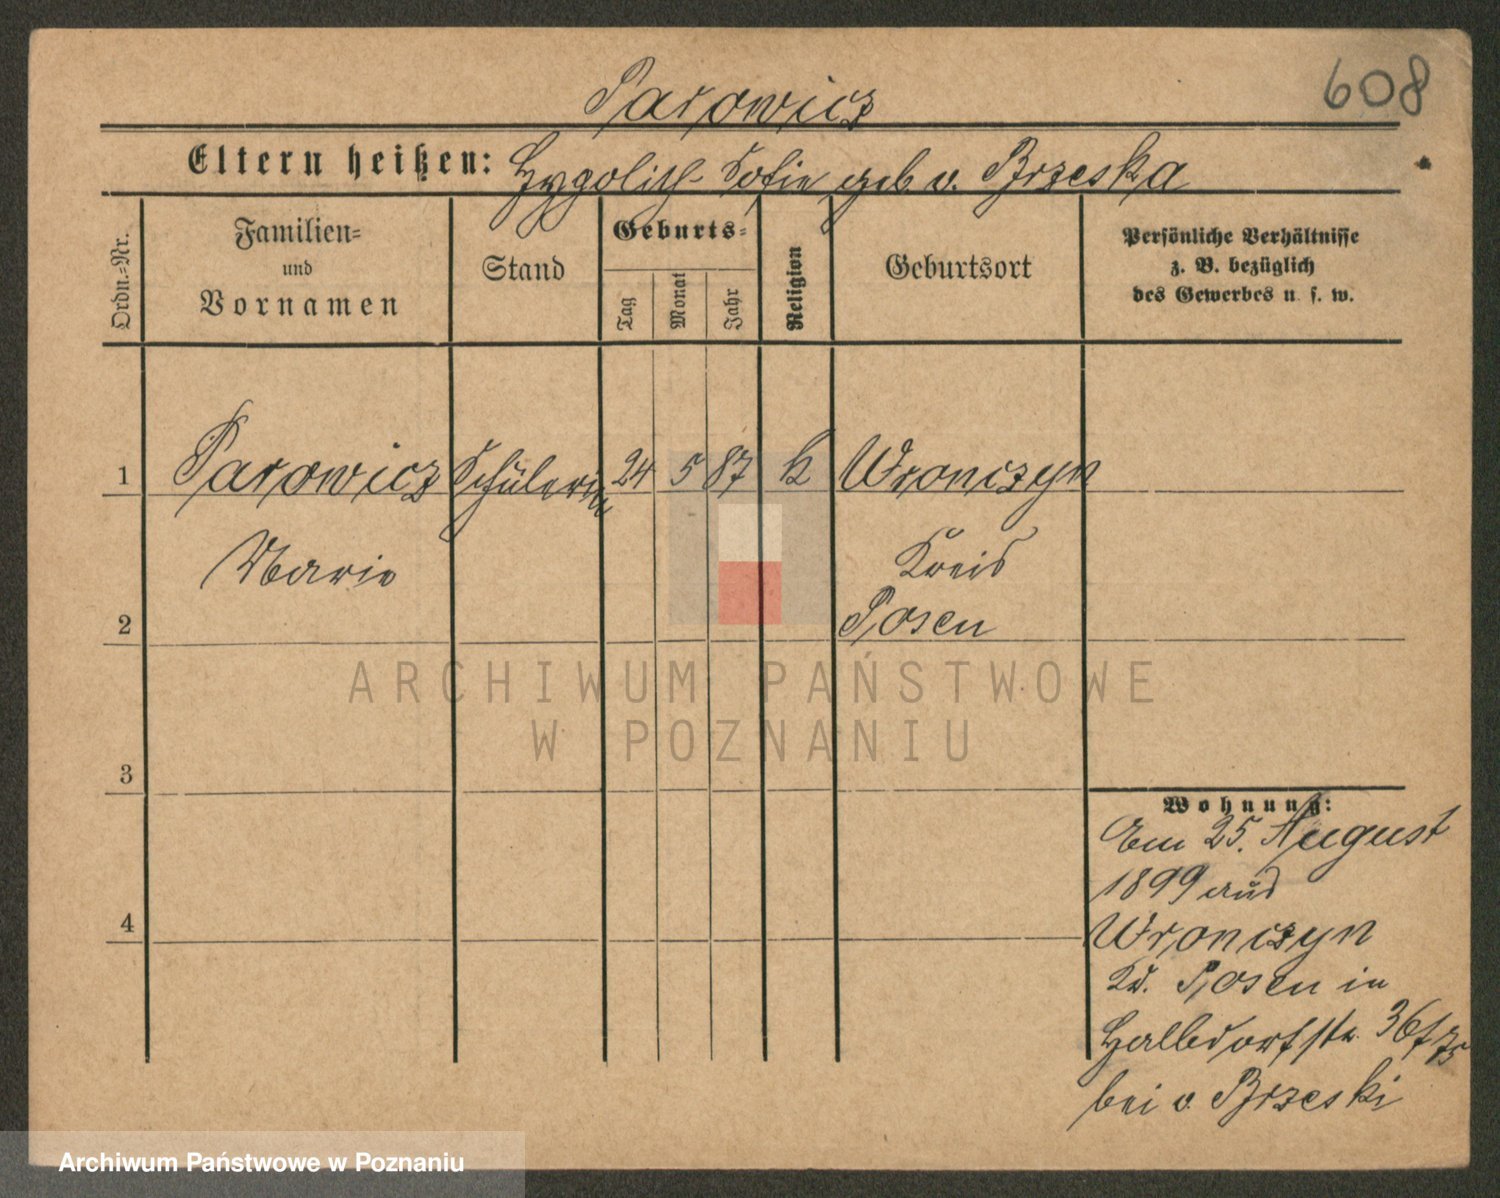 608
Parowicz
Eltern heißen: Hypolith - Sofie geb v. Brzeska
Ordn.=Nr.
Familien=
und
Vornamen
Stand
Geburts=
Tag
Monat
Jahr
Religion
Geburtsort
Persönliche Verhältnisse
z. B. bezüglich
des Gewerbes u. s. w.
1 Parowicz Schülerin 24 5 87 k Wronczyn
Marie Kreis
2 Posen
ARCHIWUM PAŃSTWOWE
W POZNANIU
3
4
Wohnung:
Am 25. August
1899 aus
Wronczyn
Kr. Posen in
Halbdorfstr. 36
bei v. Brzeski
Archiwum Państwowe w Poznaniu